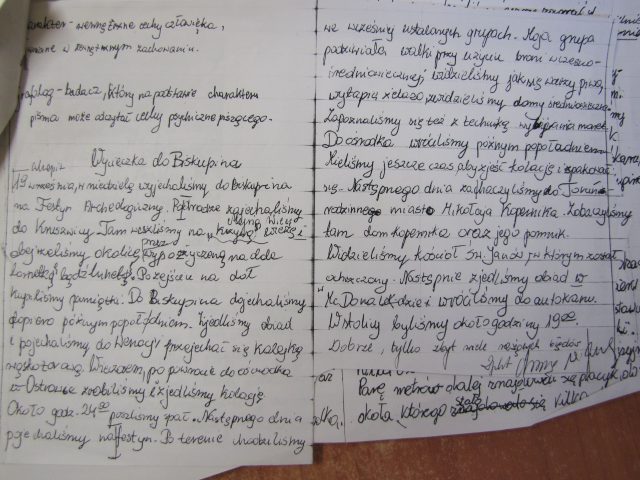 charakter - wewnętrzne cechy człowieka,
w zewnętrznym zachowaniu.
grafolog - badacz, który na podstawie charakteru
pisma może odczytać cechy psychiczne piszącego.
Wycieczka do Biskupina
19 września, w niedzielę wyjechaliśmy do Biskupina
na Festyn Archeologiczny. Po drodze zajechaliśmy
do Kruszwicy. Tam weszliśmy na "Mysią wieżę" i
obejrzeliśmy okolicę przez wypożyczoną na dole
lornetkę bądź lunetę. Po zejściu na dół
kupiliśmy pamiątki. Do Biskupina dojechaliśmy
dopiero późnym popołudniem. Zjedliśmy obiad
i pojechaliśmy do Wenecji przejechać się kolejką
wąskotorową. Wieczorem, po powrocie do ośrodka
w Ostrowie zrobiliśmy i zjedliśmy kolację
Około godz. 24⁰⁰ poszliśmy spać. Następnego dnia
pojechaliśmy na festyn. Po terenie chodziliśmy
we wcześniej ustalonych grupach. Moja grupa
podziwiała walki przy użyciu broni wczesno-
średniowiecznej, widzieliśmy jak się warzy piwo,
wytapia żelazo, zwiedziliśmy domy średniowieczne.
Zapoznaliśmy się też z techniką wybijania monet.
Do ośrodka wróciliśmy późnym popołudniem.
Mieliśmy jeszcze czas aby zjeść kolację i spakować
się. Następnego dnia zahaczyliśmy do Torunia
rodzinnego miasta Mikołaja Kopernika. Zobaczyliśmy
tam dom Kopernika oraz jego pomnik.
Widzieliśmy kościół Św. Janów, w którym został
ochrzczony. Następnie zjedliśmy obiad w
"Mc Donaldzie" i wróciliśmy do autokaru.
W stolicy byliśmy około godziny 19⁰⁰.
Dobrze, tylko zbyt wiele błędów
Parę metrów dalej znajdował się placyk,
około którego stało kilka